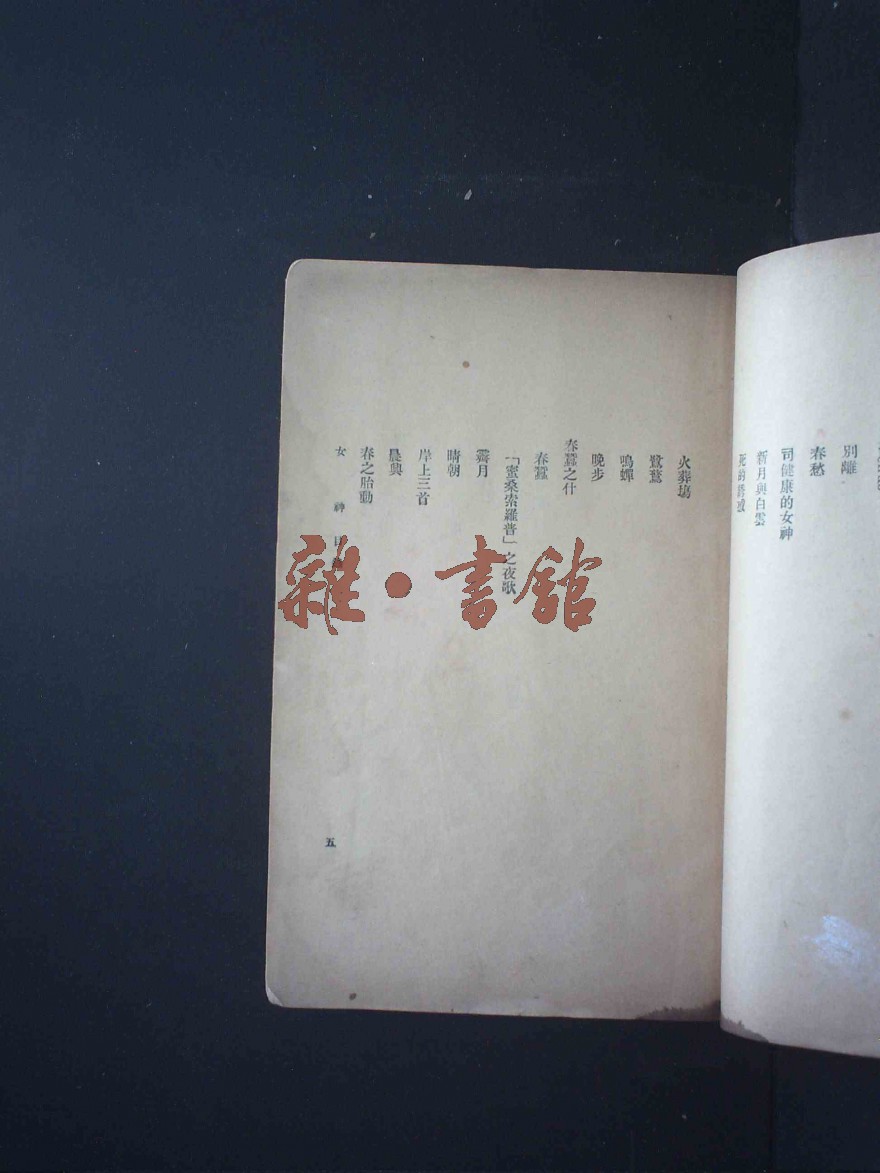 別離
春愁
司健康的女神
新月與白雲
死的誘惑
火葬場
鷺鷥
鳴蟬
晚步
春蠶之什
春蠶
「蜜桑索羅普」之夜歌
霽月
晴朝
岸上三首
晨興
春之胎動
女 神 目
五
雜·書館